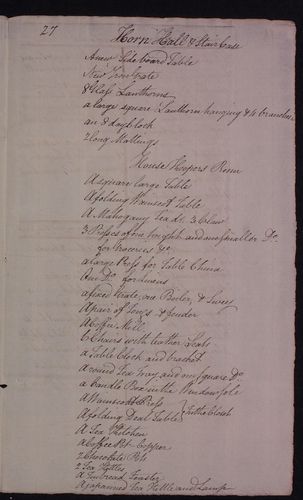 27
Horn Hall & Staircase
A new Sideboard Table
New Iron Grate
8 Glass Lanthorns
a large square Lanthorn hanging & 4 branches
an 8 day Clock
2 long Mattings
House Keepers Room
A square large Table
A folding Wainscot Table
A Mahogany Tea Do. 3 Claw
3 Presses of one height and one smaller Do.
for Groceries &c.
a large Press for Table China
One Do. for Linens
a fixed Grate, one Boiler, &
A pair of Tongs & fender
A Coffee Mill
6 Chairs with leather Seats
a Table Clock and bracket
a round Tea Tray and one square Do.
a Candle Box in the Window sole
A Wainscott Press
A folding Deal Table } In the Closet
A Tea Kitchen
A Coffee Pot Copper
2 Chocolate Pots
2 Tea Kettles
a Toaster
A japanned Tea Kettle and Lamp